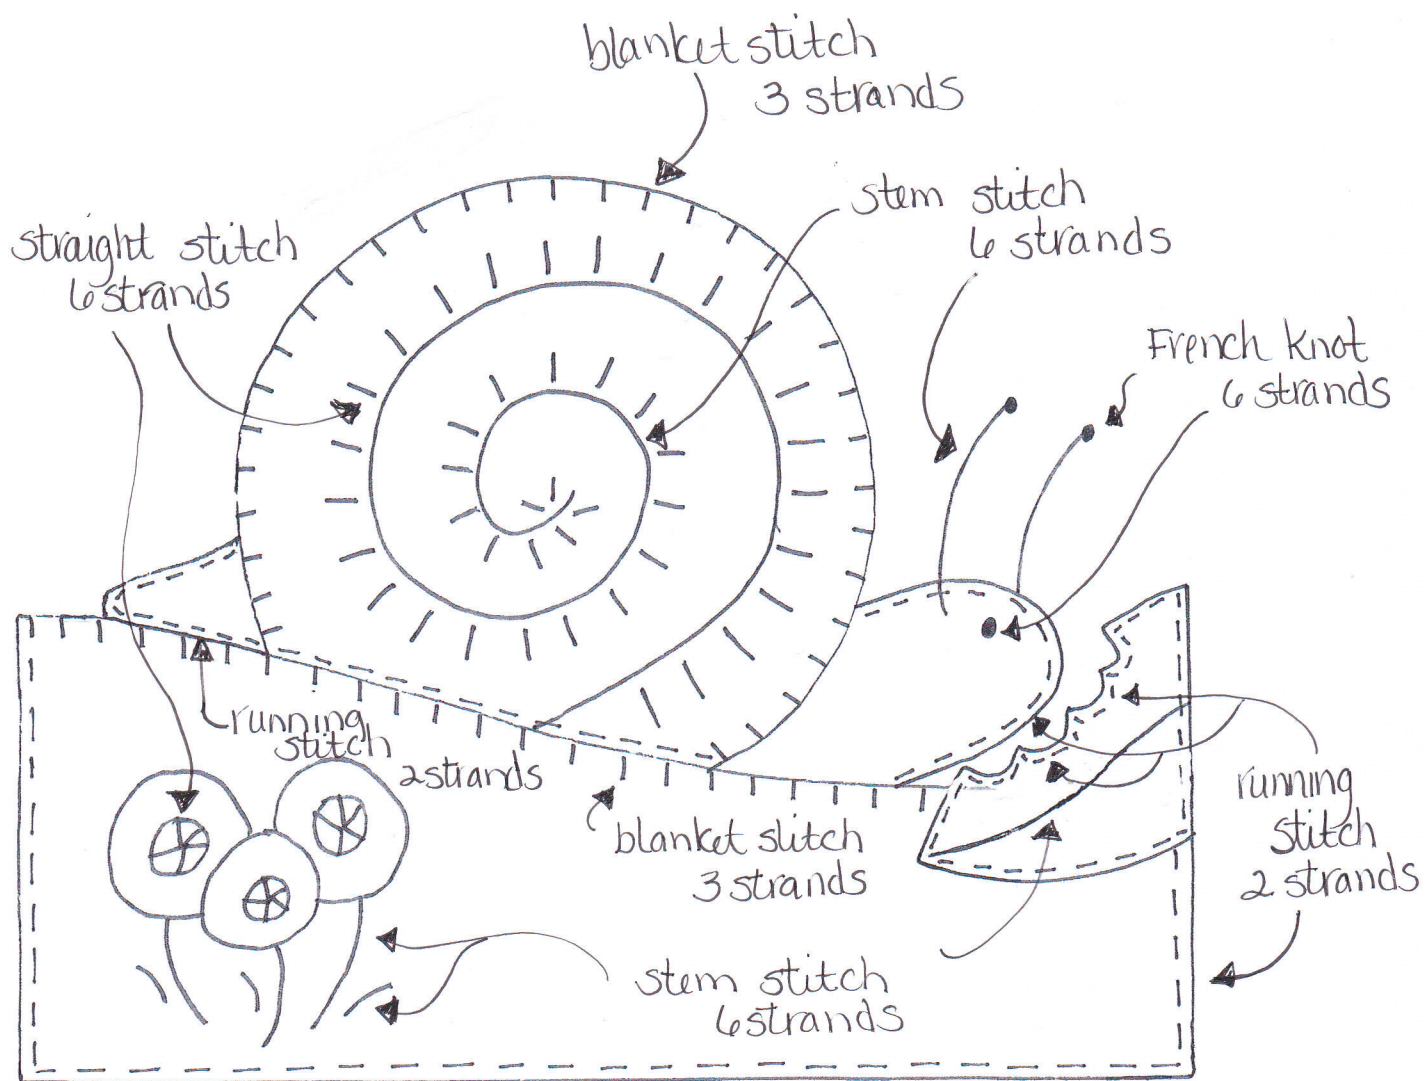 blanket stitch
3 strands
stem stitch
6 strands
straight stitch
6 strands
French knot
6 strands
running
stitch
2 strands
running
stitch
2 strands
blanket stitch
3 strands
stem stitch
6 strands